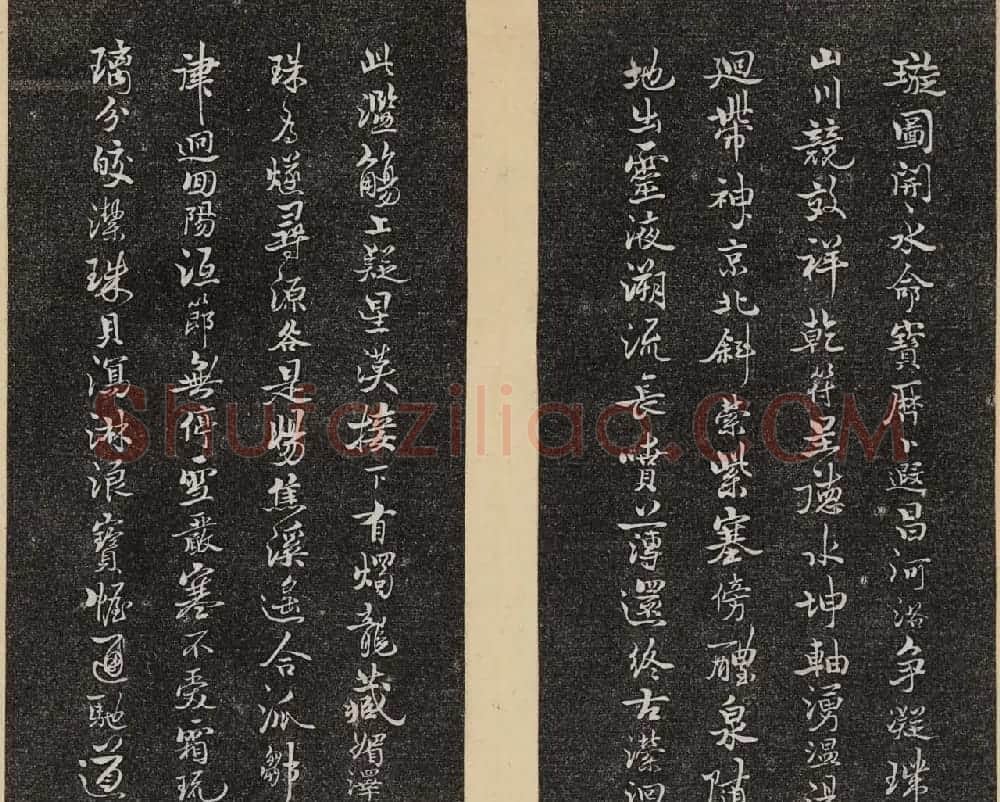 璇圖開水命寶曆卜遐昌河洛爭凝
山川競效祥乾符呈德水坤軸湧温湯
廻帶神京北斜縈紫塞傍醴泉隨
地出靈液溯流長噴薄還終古瀠洄
此濫觴上疑星漢接下有燭龍藏媚澤
珠為燧尋源谷是暘焦溪遙合派鄒
律迥回陽沍節無停雪嚴寒不受霜琉
璃分皎潔珠貝瀉淋浪寶幄邇馳道
Shufaziliao.COM